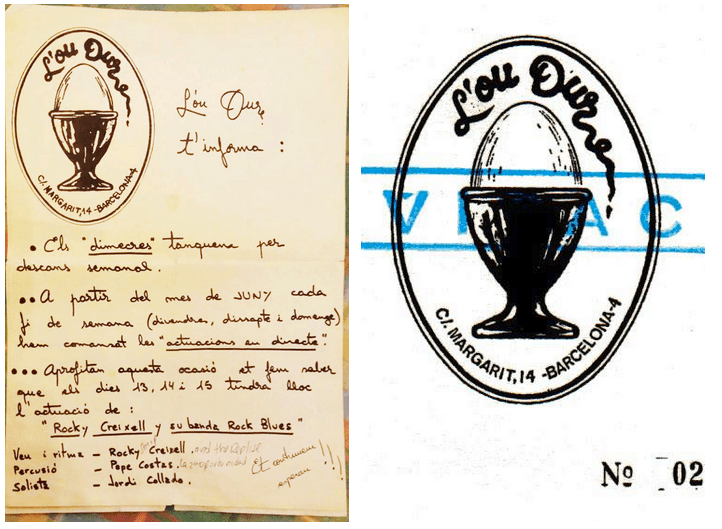 L'ou Dur
C/. MARGARIT, 14 - BARCELONA-4
L'ou Dur
t'informa :
• Els "dimecres" tanquena per
descans semanal.
•• A partir del mes de JUNY cada
fi de semana (divendres, dissapte i domenge)
hem comansat les "actuacions en directe".
••• Aprofitan aquesta ocasió et fem saber
que els dies 13, 14 i 15 tindra lloc
l'actuació de :
" Rocky Creixell y su banda Rock Blues "
Veu i ritma - Rocky Creixell.
Percusió - Pepe Costas.
Solista - Jordi Collado.
Et
esperem !!!
L'ou Dur
C/. MARGARIT, 14 - BARCELONA-4
V AC
Nº 02